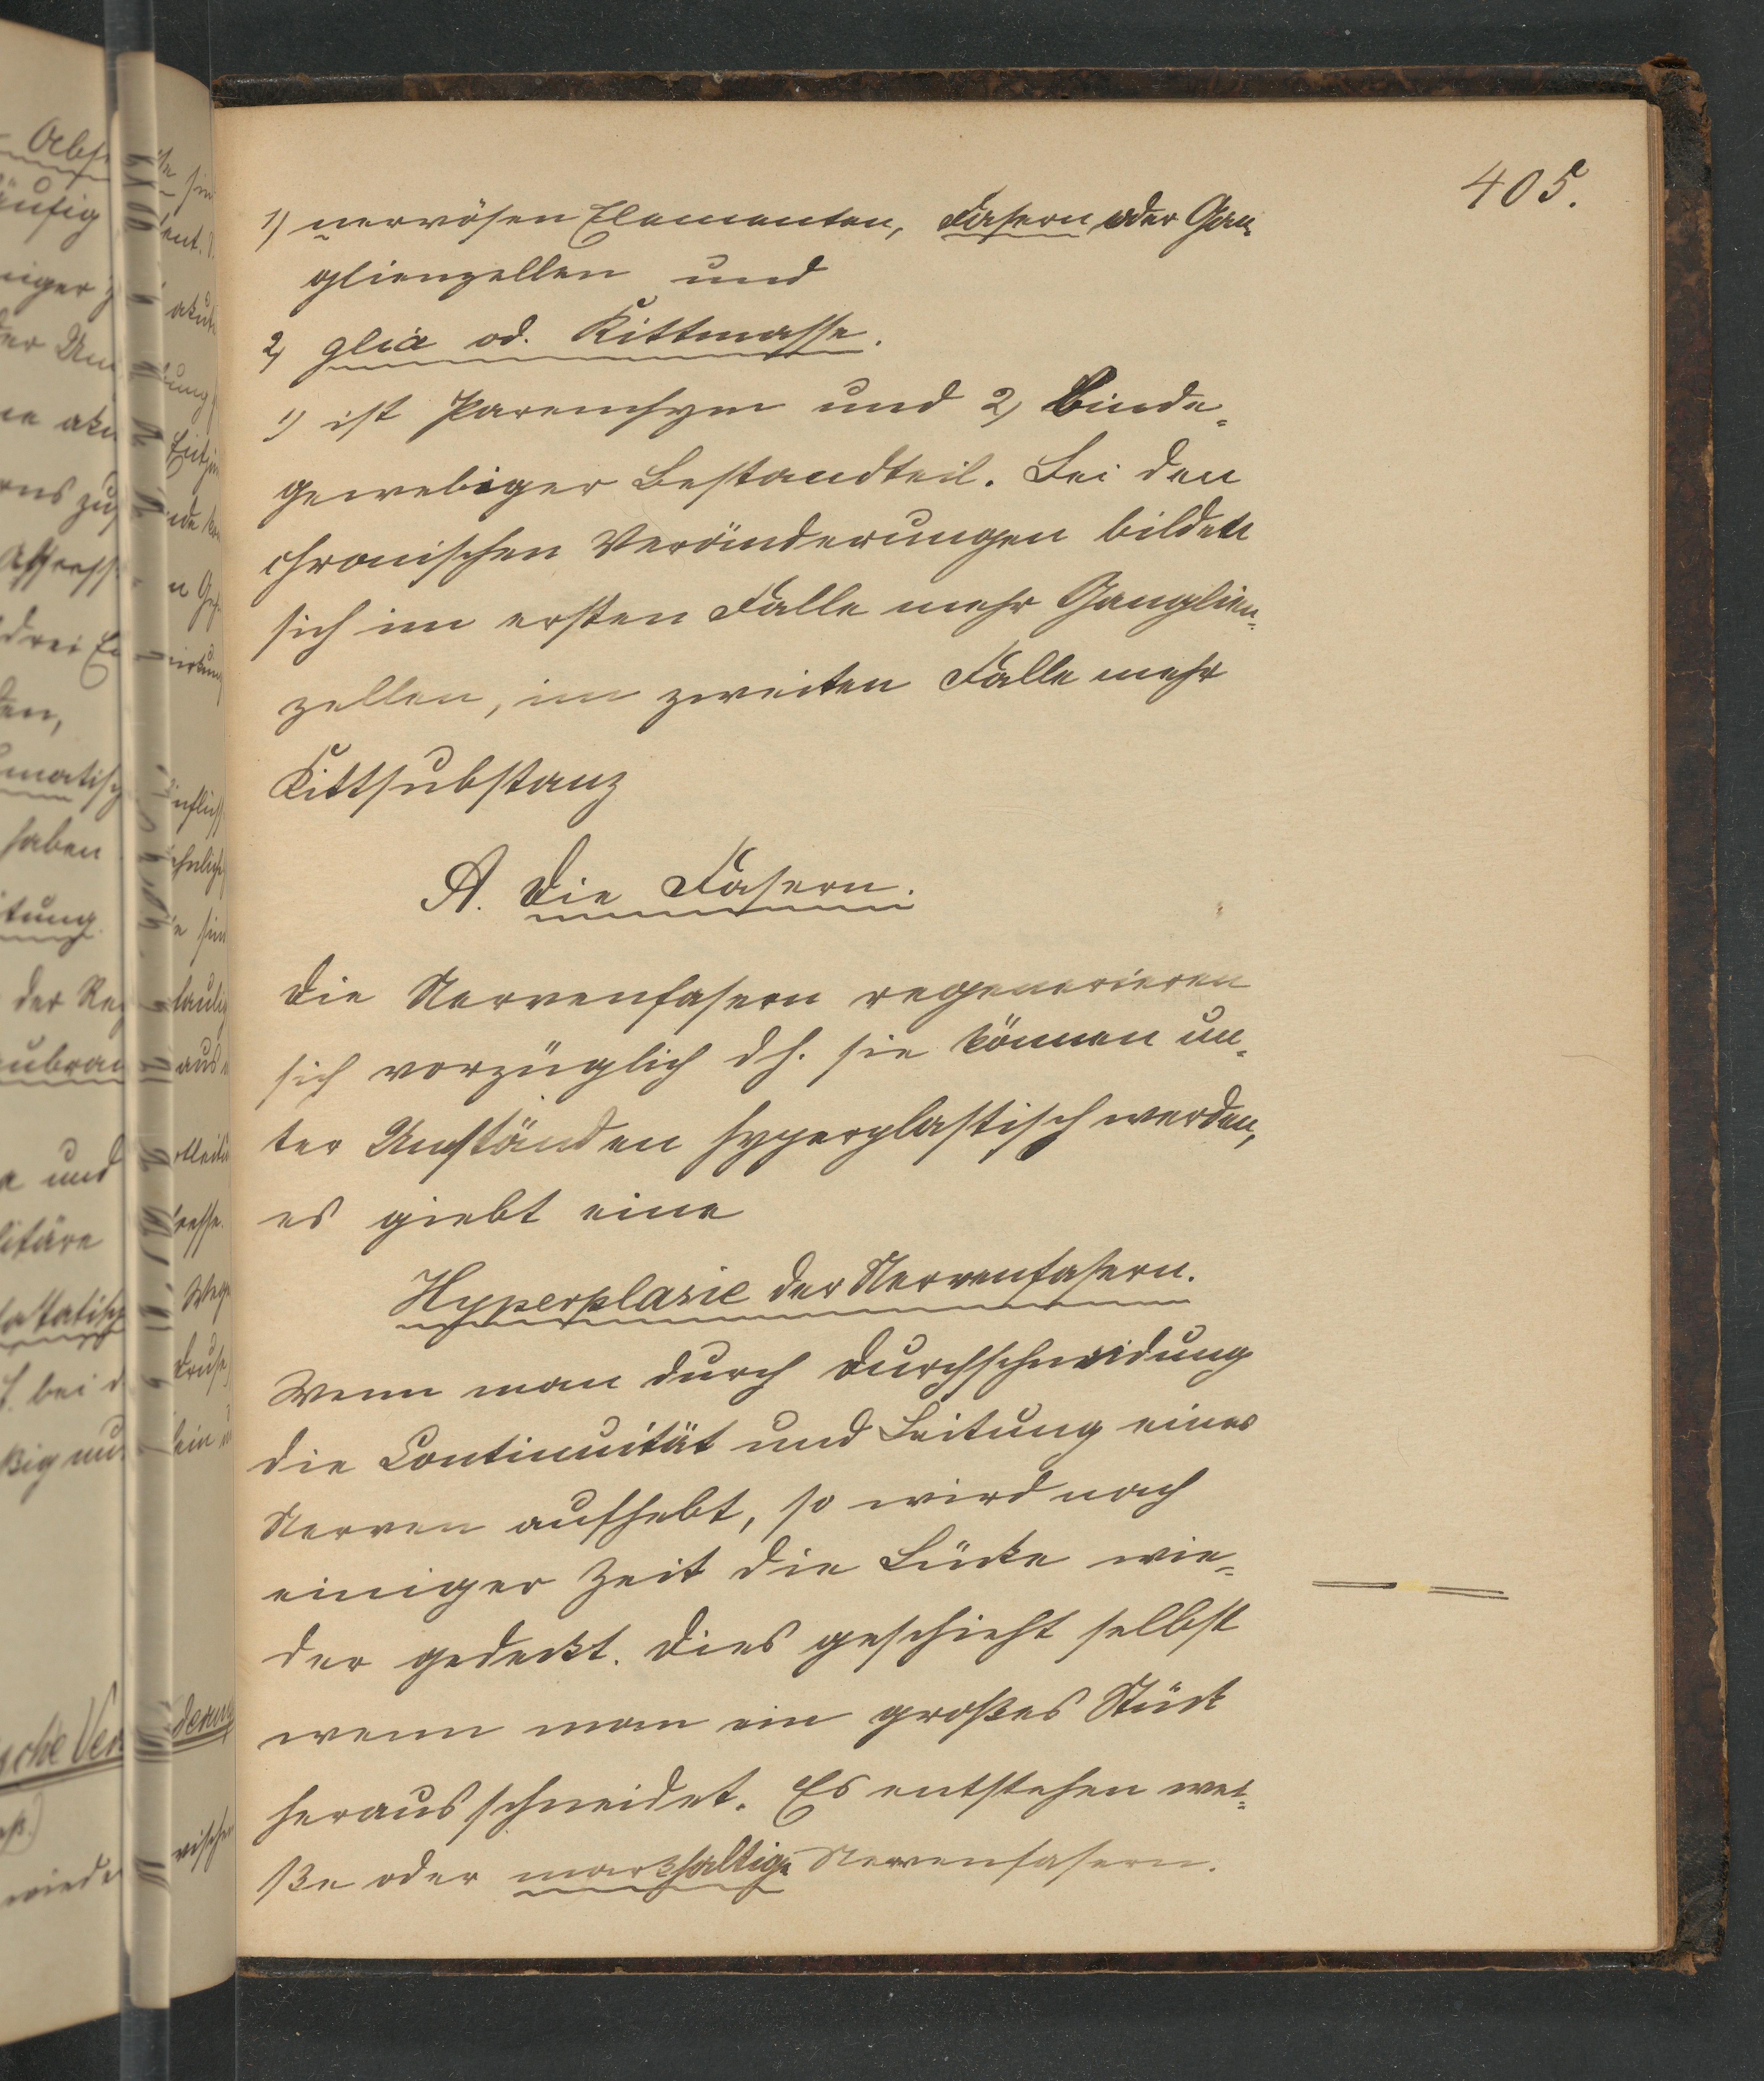 405.
1) nervösen Elementen, Fasern oder Gan-
glienzellen und
2) glia od. Kittmasse.
1) ist Parenchym und 2) Binde-
gewebiger Bestandteil. Bei den
chronischen Veränderungen bilden
sich im ersten Falle mehr Ganglien-
zellen, im zweiten Falle mehr
Kittsubstanz
A. Die Fasern.
Die Nervenfasern regenerieren
sich vorzüglich dh. sie können un-
ter Umständen hyperplastisch werden,
es giebt eine
Hyperplasie der Nervenfasern.
Wenn man durch Durchschneidung
die Continuität und Leitung eines
Nerven aufhebt, so wird nach
einiger Zeit die Lücke wie-
der gedeckt. Dies geschieht selbst
wenn man ein großes Stück
herausschneidet. Es entstehen wei-
ße oder markhaltige Nervenfasern.